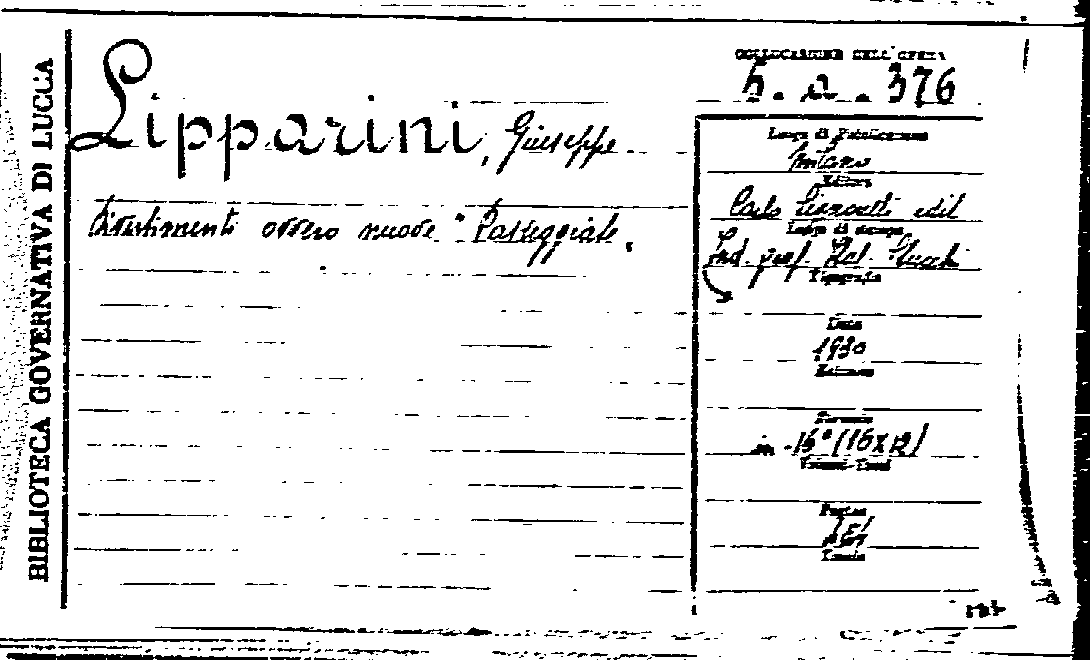 BIBLIOTECA GOVERNATIVA DI LUCCA
COLLOCAZIONE DELL'OPERA
5. a. 376
Lipparini, Giuseppe
Divertimenti ovvero nuove "Passeggiate"
Luogo di Pubblicazione
Milano
Editore
Carlo edit
Luogo di stampa
Ind. graf. Stucchi
Tipografia
Data
1930
Edizione
Formato
in-16° (16x12)
Volumi-Tomi
Pagine
Tavole